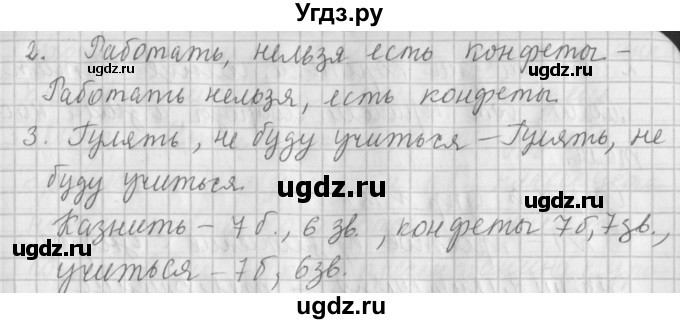 Угдз.ру
2. Работать, нельзя есть конфеты –
Работать нельзя, есть конфеты.
3. Гулять, не буду учиться – Гулять, не
буду учиться.
Казнить – 7 б., 6 зв., конфеты 7б, 7зв.,
учиться – 7 б, 6зв.
ugdz.ru
ugdz.ru
ugdz.ru
ugdz.ru
ugdz.ru
ugdz.ru
ugdz.ru
ugdz.ru